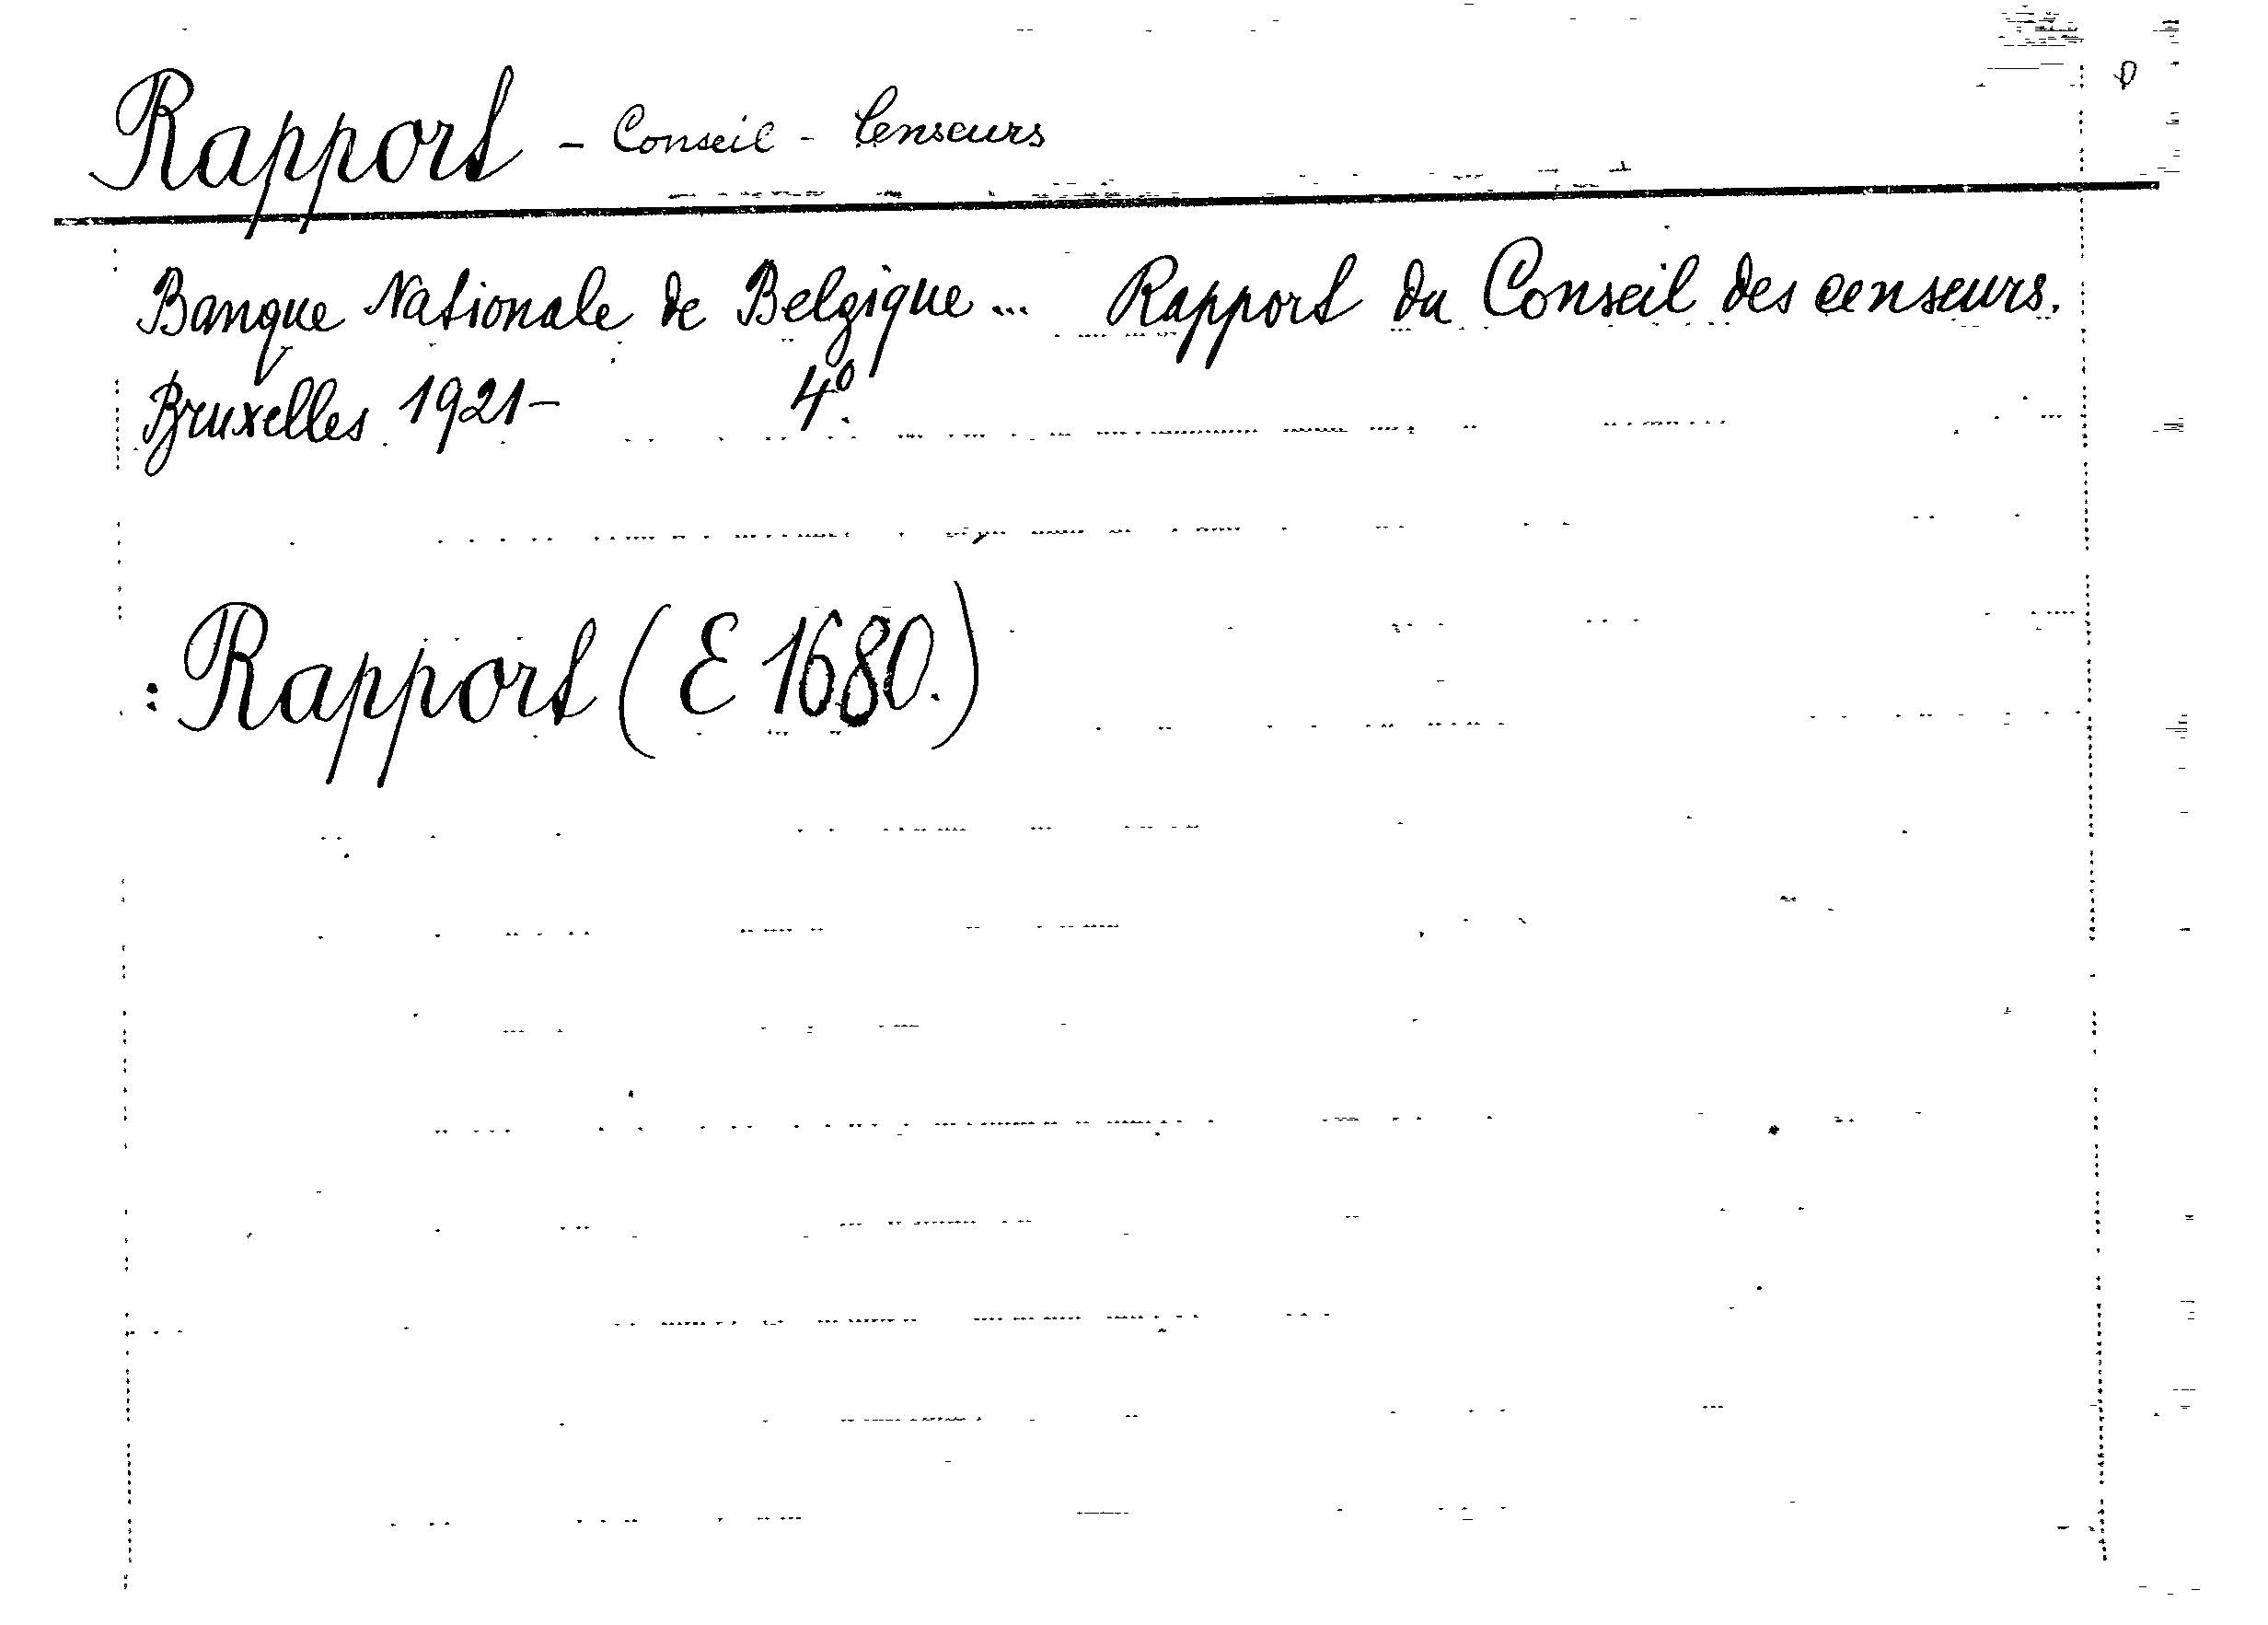 Rapport - Conseil - Censeurs
Banque Nationale de Belgique... Rapport du Conseil des censeurs.
Bruxelles 1921- 4º.
: Rapport (E 1680.)